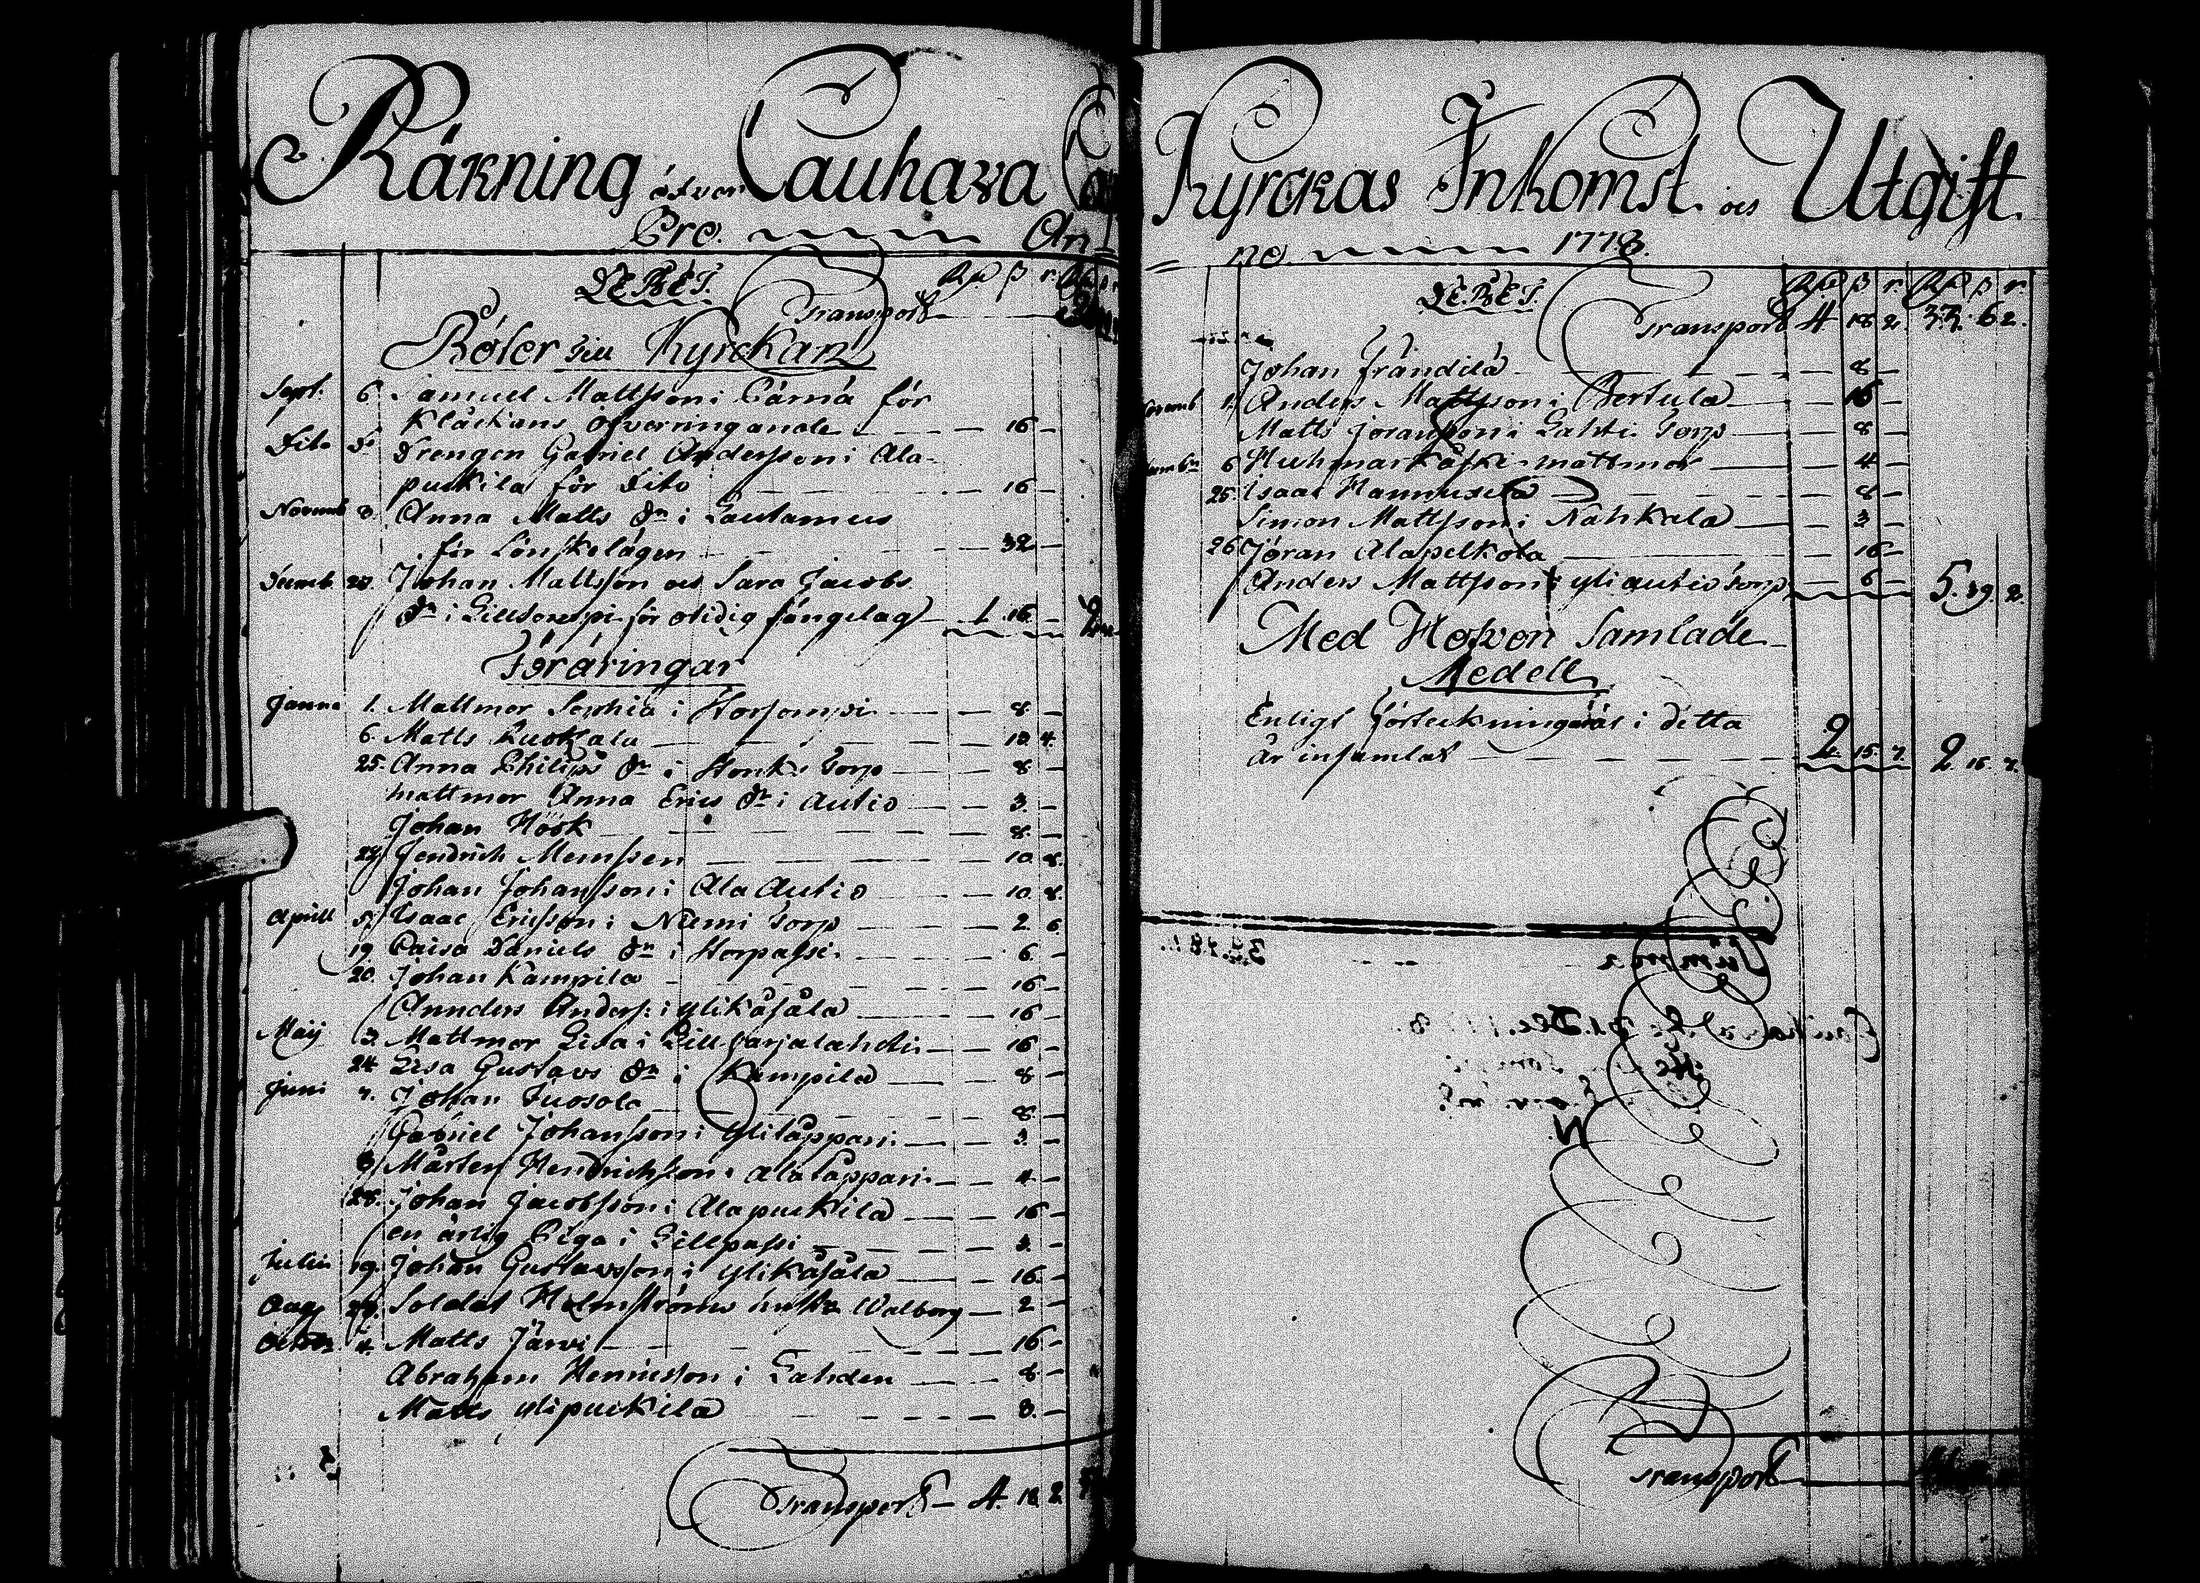 Räkning öfver Cauhava Ca
Pro. An
DEBET. Rd ß r. Rd ß r
Transport
Böter till Kyrckan
Sept. 6 Samuel Mattsson i Pärnä för
Klåckans öfverringande 16 —
Dito do Drengen Gabriel Andersson i Ala-
puckila för dito 16 —
Novemb 8. Anna Matts dr i Lautamus
för Lönskelägen 32 —
Decemb. 28. Johan Mattsson och Sara Jacobs
dr i Lillsorempi för otidig sängelag 1. 16. —
Föräringar
Janua 1. Mattmor Sophia i Storsorempi 8 —
6. Matts Luokala 10 4.
25. Anna Philips dr i Honk. Torp 8 —
mattmor Anna Erics dr i Autio 3. —
Johan Höök 8. —
27. Hendrich Memssen 10. 8.
Johan Johansson i Ala Autio 10 8.
Aprill 5. Isaac Ericsson i Niemi Torp 2 6.
19 Caisa Daniels dr i Storpassi 6 —
20. Johan Kampila 16 —
Annders Anders. i ylikåsåla 16 —
Maij 3. Mattmor Lisa i Lill Karjalahti 16 —
24 Lisa Gustavs dr i Kampila 8 —
Juni 7. Johan Tuosola 8. —
Gabriel Johansson i ylitåppari 3. —
Mårten Hendrichsson i alatåppari 4 —
28. Johan Jacobsson i Alapuckila 16 —
en ärlig Piga i Lillpassi 3. —
Julii 19. Johan Gustavsson i ylikåsåla 16. —
Aug 27. Soldat Holmströms hustr Walborg 2 —
Octob. 4. Matts Järvi 16 —
Abraham Henricsson i Lahden 8 —
Matts ylipuckila 3. —
Transport 4. 18 2.
Kyrckas Inkomst och Utgift.
no. 1778.
DEBET. Rd ß r. Rd ß r.
Transport 4 18 2. 37. 6 2.
Johan Frändilä 8 —
Novemb 1. Anders Mattsson i Pertula 16 —
Matts Joransson i Lahti Torp 8 —
6 Huhmarkåski mattmor 4 —
25. Isaac Hannuxela 8 —
Simon Mattsson i Nahkala 3 —
26 Jöran Alapelkola 16 —
Anders Mattsson i yliautio Torp 6 — 5. 29. 2.
Med Hofven Samlade
Medell
Enligt förteckning är i detta
år insamlat 2. 15. 7. 2. 15. 7.
Transport